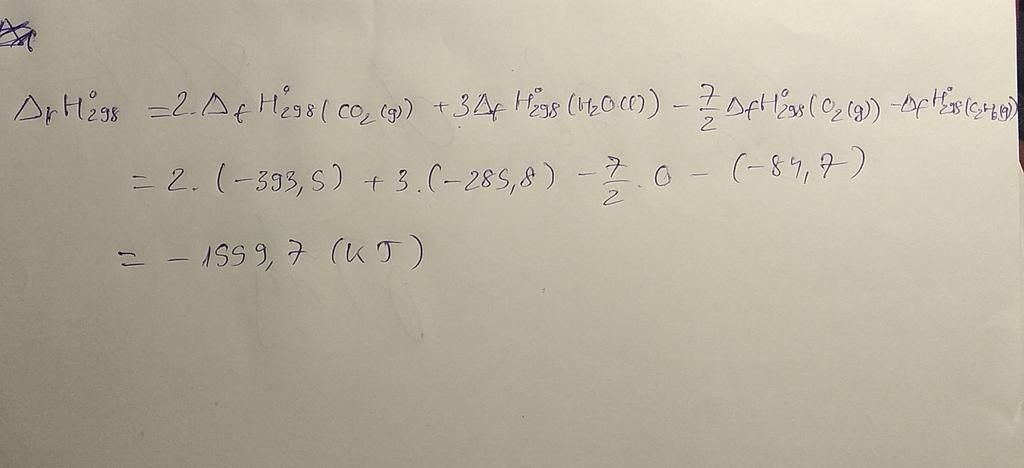 ΔrH°298 = 2.ΔfH°298(CO2(g)) + 3ΔfH°298(H2O(l)) - 7/2 ΔfH°298(O2(g)) - ΔfH°298(C2H6(g))
= 2.(-393,5) + 3.(-285,8) - 7/2 . 0 - (-84,7)
= -1559,7 (KJ)